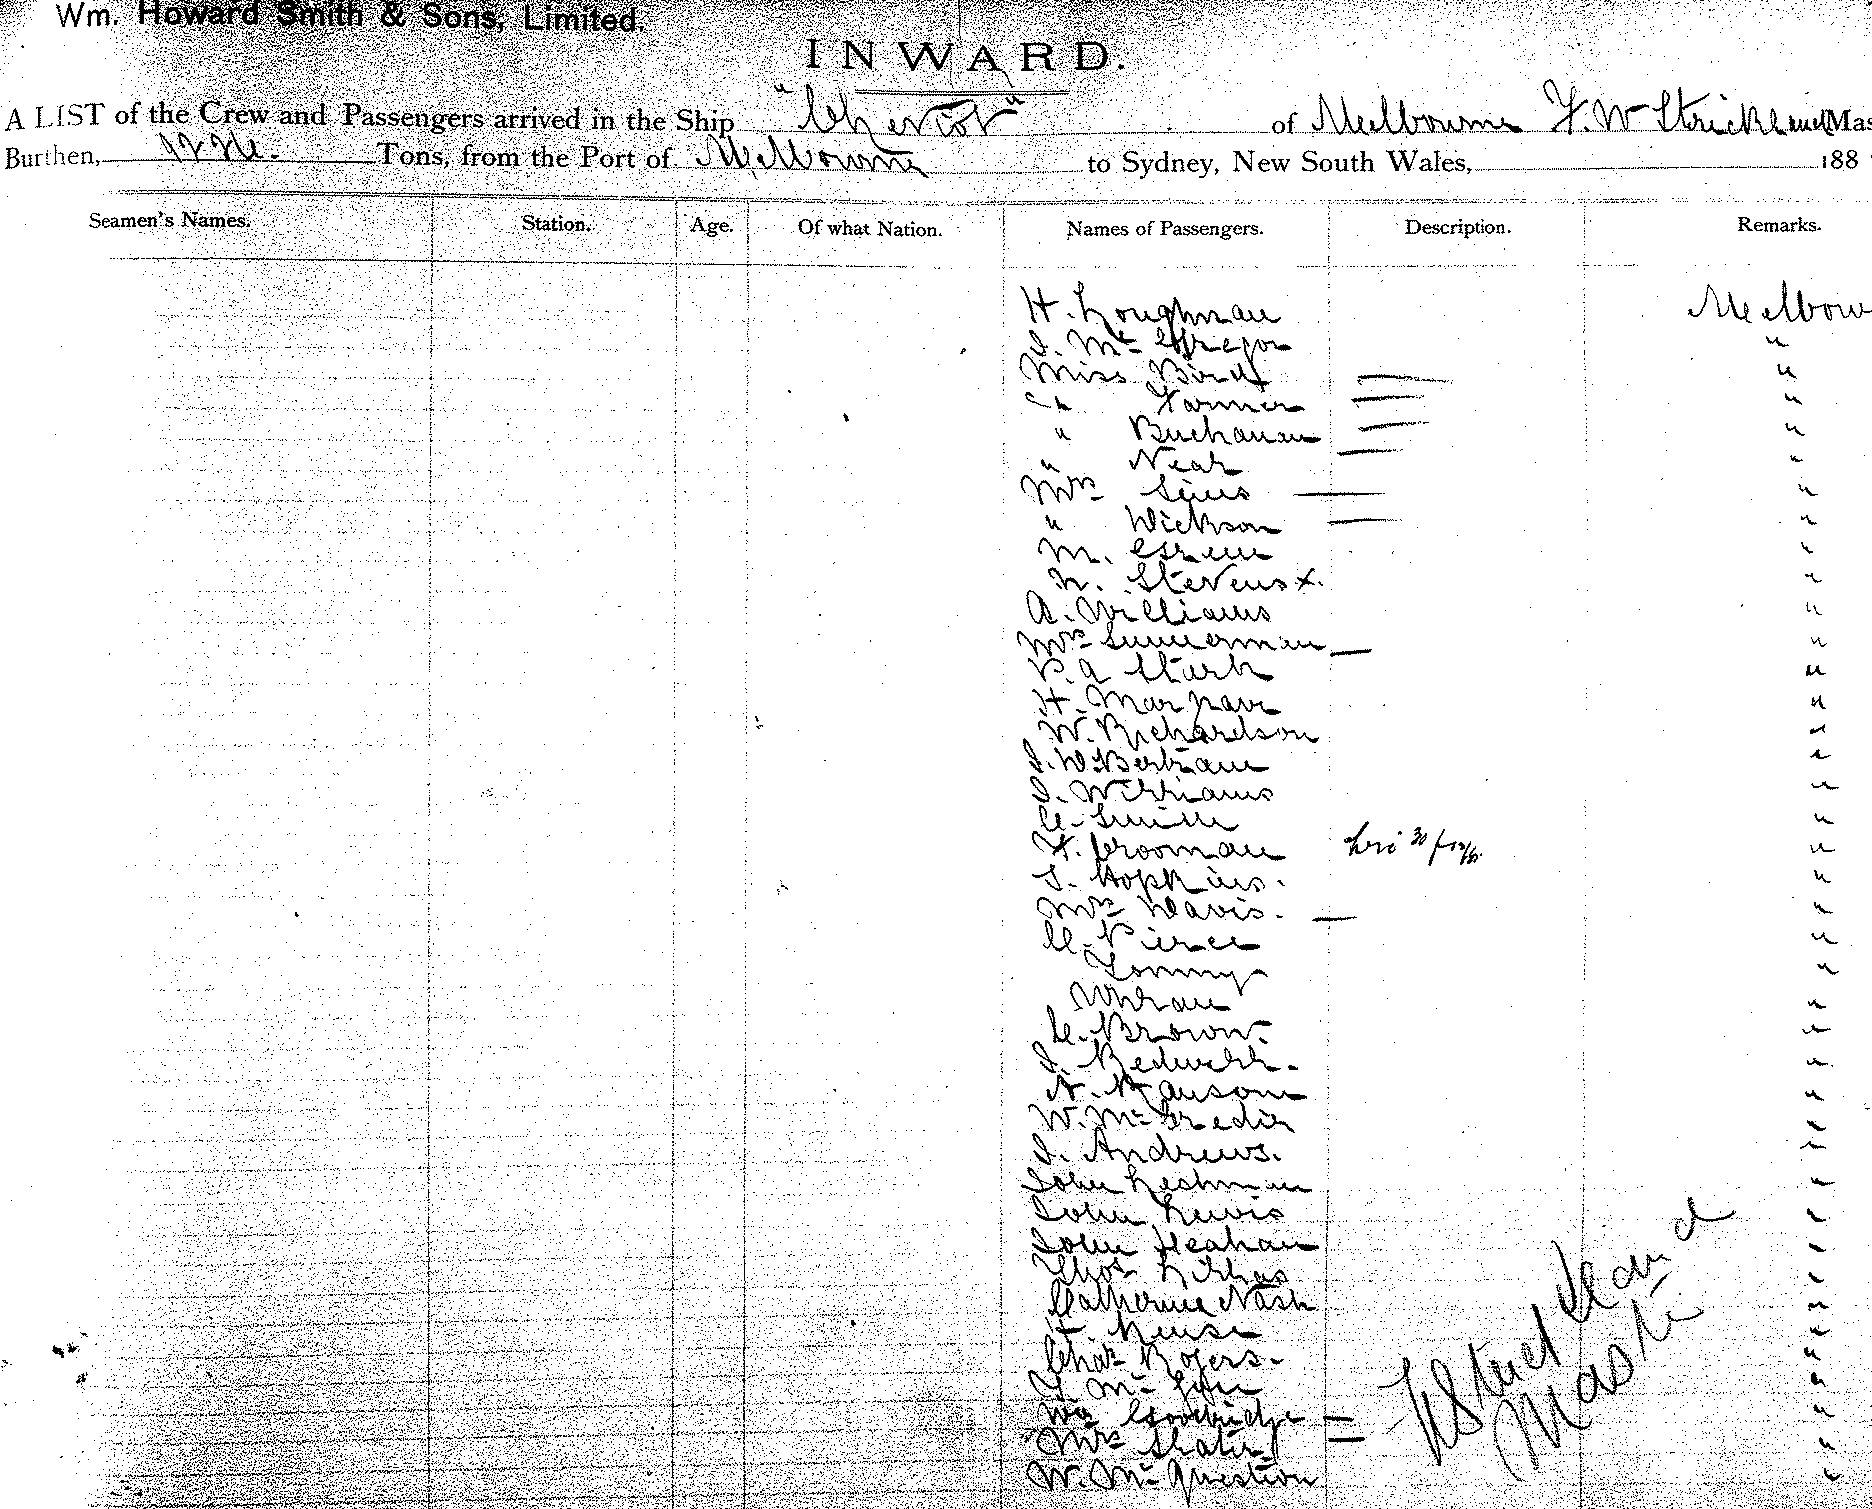 Wm. Howard Smith & Sons, Limited.
INWARD.
A LIST of the Crew and Passengers arrived in the Ship "Cheviot" of Melbourne F. W Strickland Mas
Burthen, Tons, from the Port of Melbourne to Sydney, New South Wales, 188
Seamen's Names. Station. Age. Of what Nation. Names of Passengers. Description. Remarks.
H. Loughnan Melbour
J. Mc Gregor "
Miss Birdt — "
" Farmer — "
" Buchanan — "
" Near — "
Mrs Sims — "
" Dickson — "
M. Green "
N. Stevens x. "
A. Williams "
Mrs Summerman — "
P. A Stark "
H. Margrave "
W. Richardson "
J. W. Bertram "
J. Williams "
C. Smith "
F. Crooman "
S. Hopkins. "
Mrs Davis. — "
C. Pierce "
Tommy "
Whlan "
C. Brown. "
J. Bedwell. "
A. Ransom "
W. Mc Credie "
J. Andrews. "
John Leshman "
John Lewis "
John Heahan "
Thos "
Catherine Nash "
H. "
Chas Rogers. "
Mc "
Wm Goodridge — "
Mrs Slater — "
W. Mc Question "
Strickland
Master